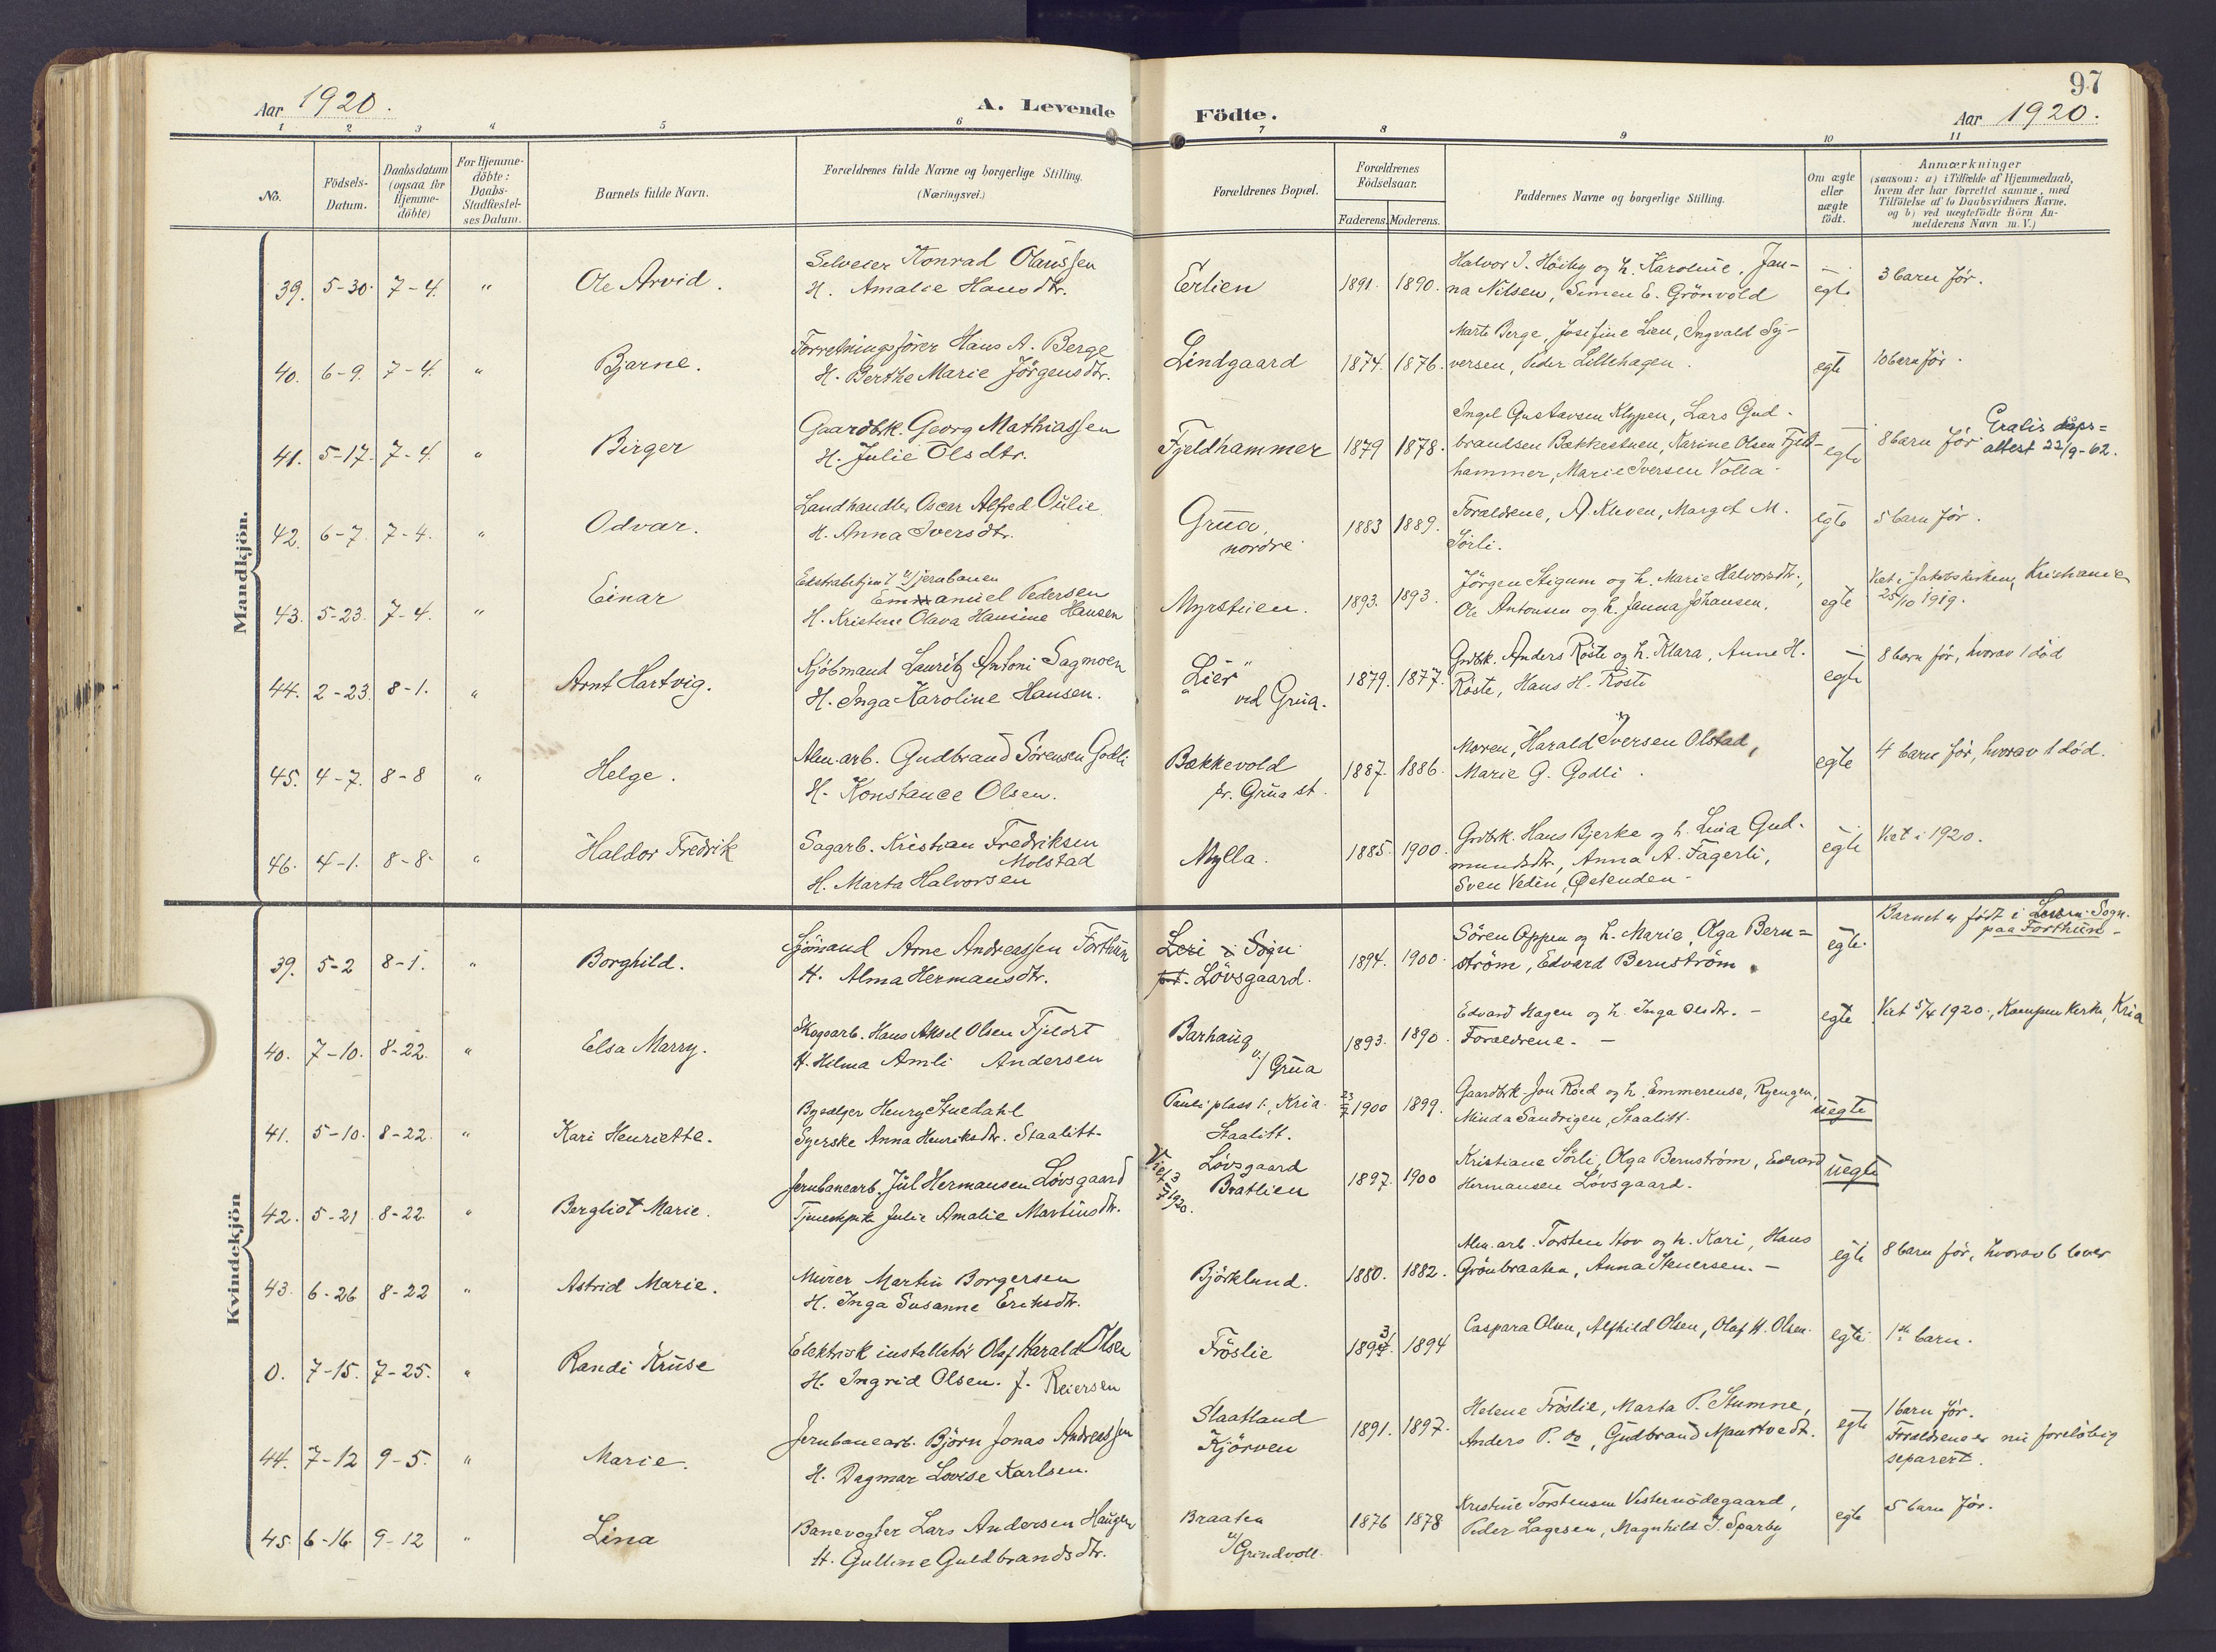 97
Aar 1920.
A. Levende Födte.
Aar 1920.
1 2 3 4 5 6 7 8 9 10 11
No.
Födsels-
Datum.
Daabsdatum
(ogsaa for
Hjemme-
döbte)
For Hjemme-
döbte:
Daabs-
Stadfæstel-
ses Datum.
Barnets fulde Navn.
Forældrenes fulde Navne og borgerlige Stilling.
(Næringsvei.)
Forældrenes Bopæl.
Forældrenes
Födselsaar.
Faderens. Moderens.
Faddernes Navne og borgerlige Stilling.
Om ægte
eller
uægte
födt.
Anmærkninger
(saasom: a) i Tilfælde af Hjemmedaab,
hvem der har forrettet samme, med
Tilföielse af to Daabsvidners Navne.
og b) ved uægtefödte Börn An-
melderens Navn m. V.)
Mandkjön.
39. 5-30. 7-4. " Ole Arvid.
Konrad Olaussen
H. Amalie Hansdtr.
Erlien
1891. 1890.
Halvor J. Höiby og h. Karoline, Jan-
na Nilsen, Simen E. Grönvold
egte
3 barn før.
40. 6-9. 7-4. " Bjarne.
Forretningsfører Hans A. Berge
H. Berthe Marie Jörgensdtr.
Lindgaard
1874. 1876.
Marte Berge, Josefine Lien, Ingvald Sy-
versen, Peder Lillehagen.
egte
10 barn før.
41. 5-17. 7-4. " Birger
Gaardbrk. Georg Mathiassen
H. Julie Olsdtr.
Fjeldhammer
1879 1878.
Ingel Gustavsen Klypen, Lars Gud-
brandsen Bækkestuen, Karine Olsen Fjeld-
hammer, Marie Iversen Volla.
egte
8 barn før
Gratis dåps=
attest 22/9-62.
42. 6-7. 7-4. " Odvar.
Landhandler Oscar Alfred Oulie
H. Anna Iversdtr.
Grua,
nordre
1883 1889.
Forældrene, A. Kleven, Margot M.
Sörli.
egte
5 barn før.
43. 5-23. 7-4. " Einar
Ekstrabetjent v/jernbanen
Emmanuel Pedersen
H. Kristine Olava Hansine Hansen
Myrstuen.
1893. 1893.
Jörgen Stigum og h. Marie Halvorsdtr.,
Ole Antonsen og h. Janna Johansen.
egte
Viet i Jakobskirken, Kristiania
25/10 1919.
44. 2-23. 8-1. " Arnt Hartvig.
Kjöbmand Lauritz Antoni Sagmoen
H. Inga Karoline Hansen.
"Lier"
ved Grua.
1879. 1877.
Grdbrk. Anders Röste og h. Klara, Anne H.
Röste, Hans H. Röste
egte
8 barn før, hvorav 1 død
45. 4-7. 8-8 " Helge.
Alm.arb. Gudbrand Sörensen Godli
H. Konstance Olsen.
Bækkevold
pr. Grua st.
1887. 1886.
Moren, Harald Iversen Olstad,
Marie G. Godli.
egte
4 barn før, hvorav 1 død.
46. 4-1. 8-8. " Haldor Fredrik
Sagarb. Kristian Fredriksen
Molstad
H. Marta Halvorsen
Mylla.
1885. 1900.
Grdbrk. Hans Bjerke og h. Lina Gud-
mundsdtr., Anna A. Fagerli,
Sven Vedin, Østenden.
egte
Viet i 1920.
Kvindekjön
39. 5-2 8-1. " Borghild.
Sjömand Arne Andreassen Forthun
H. Alma Hermansdtr.
Leri i Sogn
pt. Lövsgaard.
1894. 1900.
Sören Oppen og h. Marie, Olga Bern=
ström, Edvard Bernström.
egte.
Barnet er født i Sogn.
paa Forthun.
40. 7-10. 8-22. " Elsa Marry.
Skogsarb. Hans Aksel Olsen Fjeldst
H. Hilma Amli Andersen
Barhaug
v/ Grua
1893. 1890.
Edvard Hagen og h. Inga Olsdtr. -
Forældrene. -
egte
Viet 5/4 1920., Kampen Kirke, Kria
41. 5-10. 8-22. " Kari Henriette.
Bysælger Henry Stuedahl
Syerske Anna Henriksdtr. Staalitt.
Pauli plass 1., Kria.
Staalitt.
1900 1899.
Gaardbrk. Jon Röed og h. Emmerense, Ryengen,
Minda Sandvigen, Staalitt.
uegte
42. 5-21 8-22. " Bergliot Marie.
Jernbanearb. Jul Hermansen Lövsgaard
Tjenestepike Julie Amalie Martinsdtr.
Viet 3/7 1920.
Lövsgaard
Bratlien
1897. 1900
Kristiane Sörli, Olga Bernström, Edvard
Hermansen Lövsgaard.
uegte
43. 6-26 8-22 " Astrid Marie.
Murer Martin Borgersen
H. Inga Susanne Eriksdtr.
Björklund.
1880. 1882.
Alm. arb. Torsten Hov og h. Kari, Hans
Grönbraaten, Anna Stenersen. -
egte
8 barn før, hvorav 6 lever
0. 7-15. 7-25. " Randi Kruse
Elektrisk installatör Olaf Harald Olsen
H. Ingrid Olsen. f. Reiersen
Fröslie
1893. 1894
Caspara Olsen, Alfhild Olsen, Olaf H. Olsen.
egte
1ste barn.
44. 7-12 9-5. " Marie.
Jernbanearb. Björn Jonas Andreassen
H. Dagmar Lovise Karlsen.
Slaatland
Kjörven
1891. 1897.
Helene Fröslie, Marta P. Stumne,
Anders P. do, Gudbrand
egte
1 barn før.
Forældrene er nu foreløbig
separert.
45. 6-16. 9-12 " Lina
Banevogter Lars Andersen Haugen
H. Gulline Guldbrandsdtr.
Braaten
v/Grindvoll.
1876 1878
Kristine Torstensen Vesternödegaard,
Peder Lagesen, Magnhild J. Sparby
egte
5 barn før.